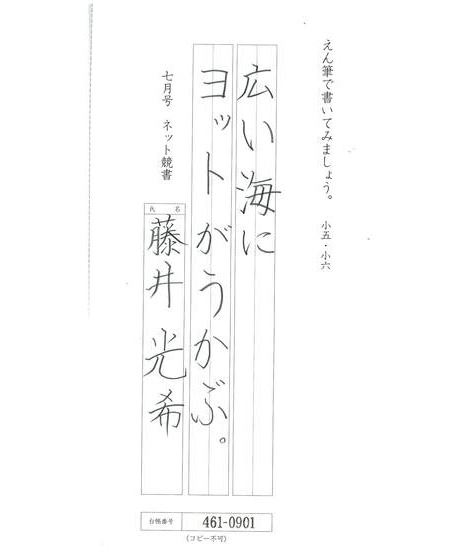 えん筆で書いてみましょう。 小五・小六
広い海に
ヨットがうかぶ。
七月号 ネット競書
氏名
藤井光希
台帳番号 461-0901
(コピー不可)